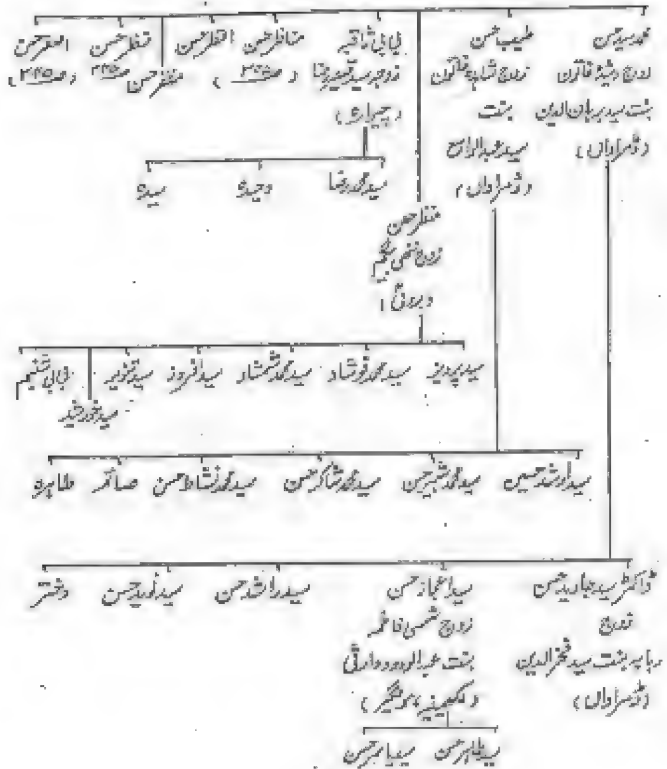 محمد سید حسن
زوج رشیدہ خاتون
بنت سید برہان الدین
(ڈمراواں)
طیب حسن
زوج شاہدہ خاتون
بنت
سید عبدالواسع
(ڈمراواں)
بی بی ذاقیہ
زوجہ سید قیصر رضا
مناظر حسن
(ص ۲۳۵)
اظفر حسن
مظفر حسن
اصغر حسن
(ص ۲۳۵)
سید محمد رضا
وحیدہ
سیدہ
منظر حسن
زوج ننھی بیگم
سید پرویز
سید محمد نوشاد
سید محمد شمشاد
سید افروز
سید تنویر
سید خورشید
بی بی تسنیم
سید ارشد حسین
سید محمد شبیر حسن
سید محمد شاکر حسن
سید محمد نشاط حسن
صائمہ
طاہرہ
ڈاکٹر سید جاوید حسن
زوج
بنت سید فخر الدین
(ڈمراواں)
سید اعجاز حسن
زوج شمسی فاطمہ
بنت عبدالودود وارثی
سید راشد حسن
سید نوید حسن
دختر
سید طاہر حسن
سید یاسر حسن